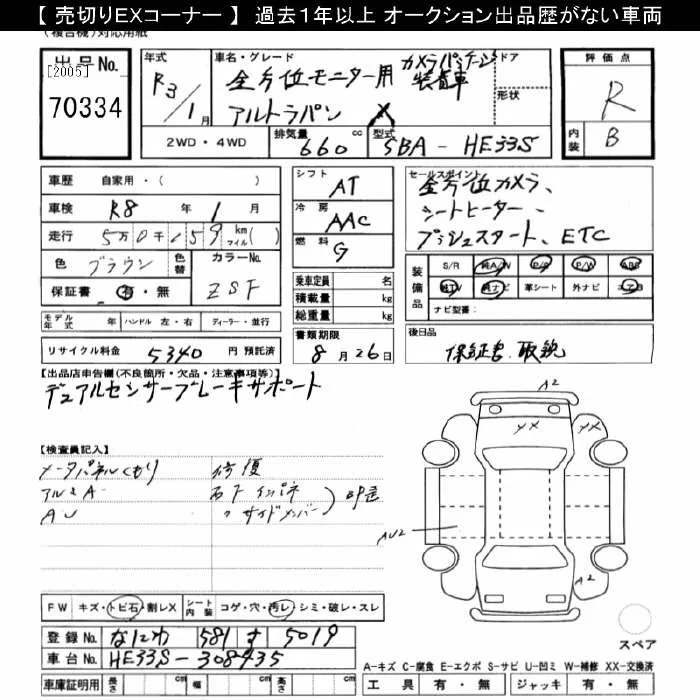 【 売切りEXコーナー 】 過去1年以上 オークション出品歴がない車両
(複合機)対応用紙
出品No. [2005] 70334
年式 R3/1月
車名・グレード 全方位モニター用カメラパッケージ装着車
アルトラパン X
ドア 形状
評価点 R
内装 B
2WD・4WD 排気量 660 cc 型式 5BA - HE33S
車歴 自家用・( )
車検 R8 年 1 月
走行 5万0千159 km マイル( )
色 ブラウン 色替 カラーNo. ZSF
保証書 有・無
モデル年式 年 ハンドル 左・右 ディーラー・並行
リサイクル料金 5340 円 預託済
シフト AT
冷房 AAC
燃料 G
乗車定員 名
積載量 kg
総重量 kg
書類期限 8月26日
セールスポイント
全方位カメラ、
シートヒーター、
プッシュスタート、ETC
装備品 S/R 純A/W P/S P/W ABS
純TV 純ナビ 革シート 外ナビ エアB
ナビ型番:
後日品
保証書、取説
【出品店申告欄(不良箇所・欠品・注意事項等)】
デュアルセンサーブレーキサポート
【検査員記入】
メータパネルくもり
アルミA
AU
修復
右フインパネ
〃サイドメンバー
A2
XX
XX
AU2
A2
FW キズ・トビ石・割レX シート内装 コゲ・穴・汚レ・シミ・破レ・スレ
スペア
登録No. なにわ 581 す 5019
車台No. HE33S-308435
A-キズ C-腐食 E-エクボ S-サビ U-凹ミ W-補修 XX-交換済
車庫証明用 長さ cm 幅 cm 高さ cm
工具 有・無 ジャッキ 有・無